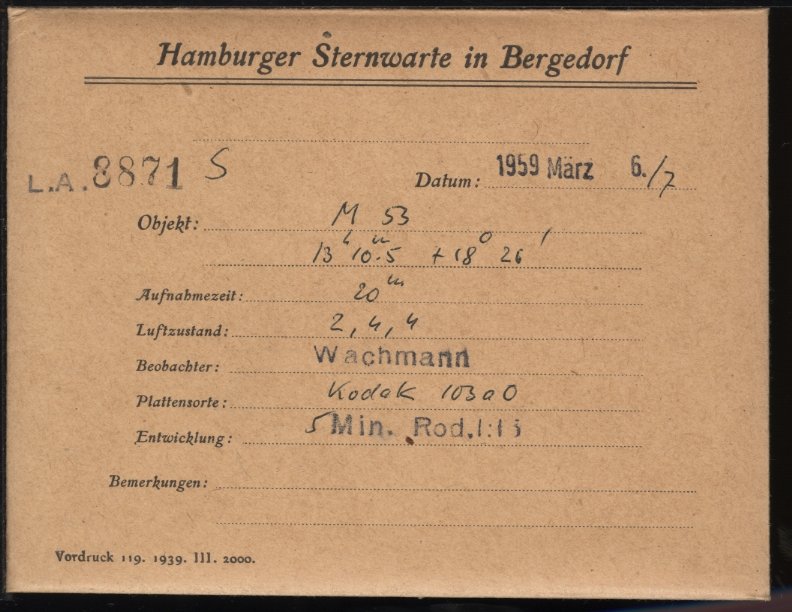 Hamburger Sternwarte in Bergedorf
L.A. 8871 S
Datum: 1959 März 6./7
Objekt: M 53
13h 10m.5 + 18° 26'
Aufnahmezeit: 20m
Luftzustand: 2, 4, 4
Beobachter: Wachmann
Plattensorte: Kodak 103a0
Entwicklung: 5 Min. Rod. 1:15
Bemerkungen:
Vordruck 119. 1939. III. 2000.